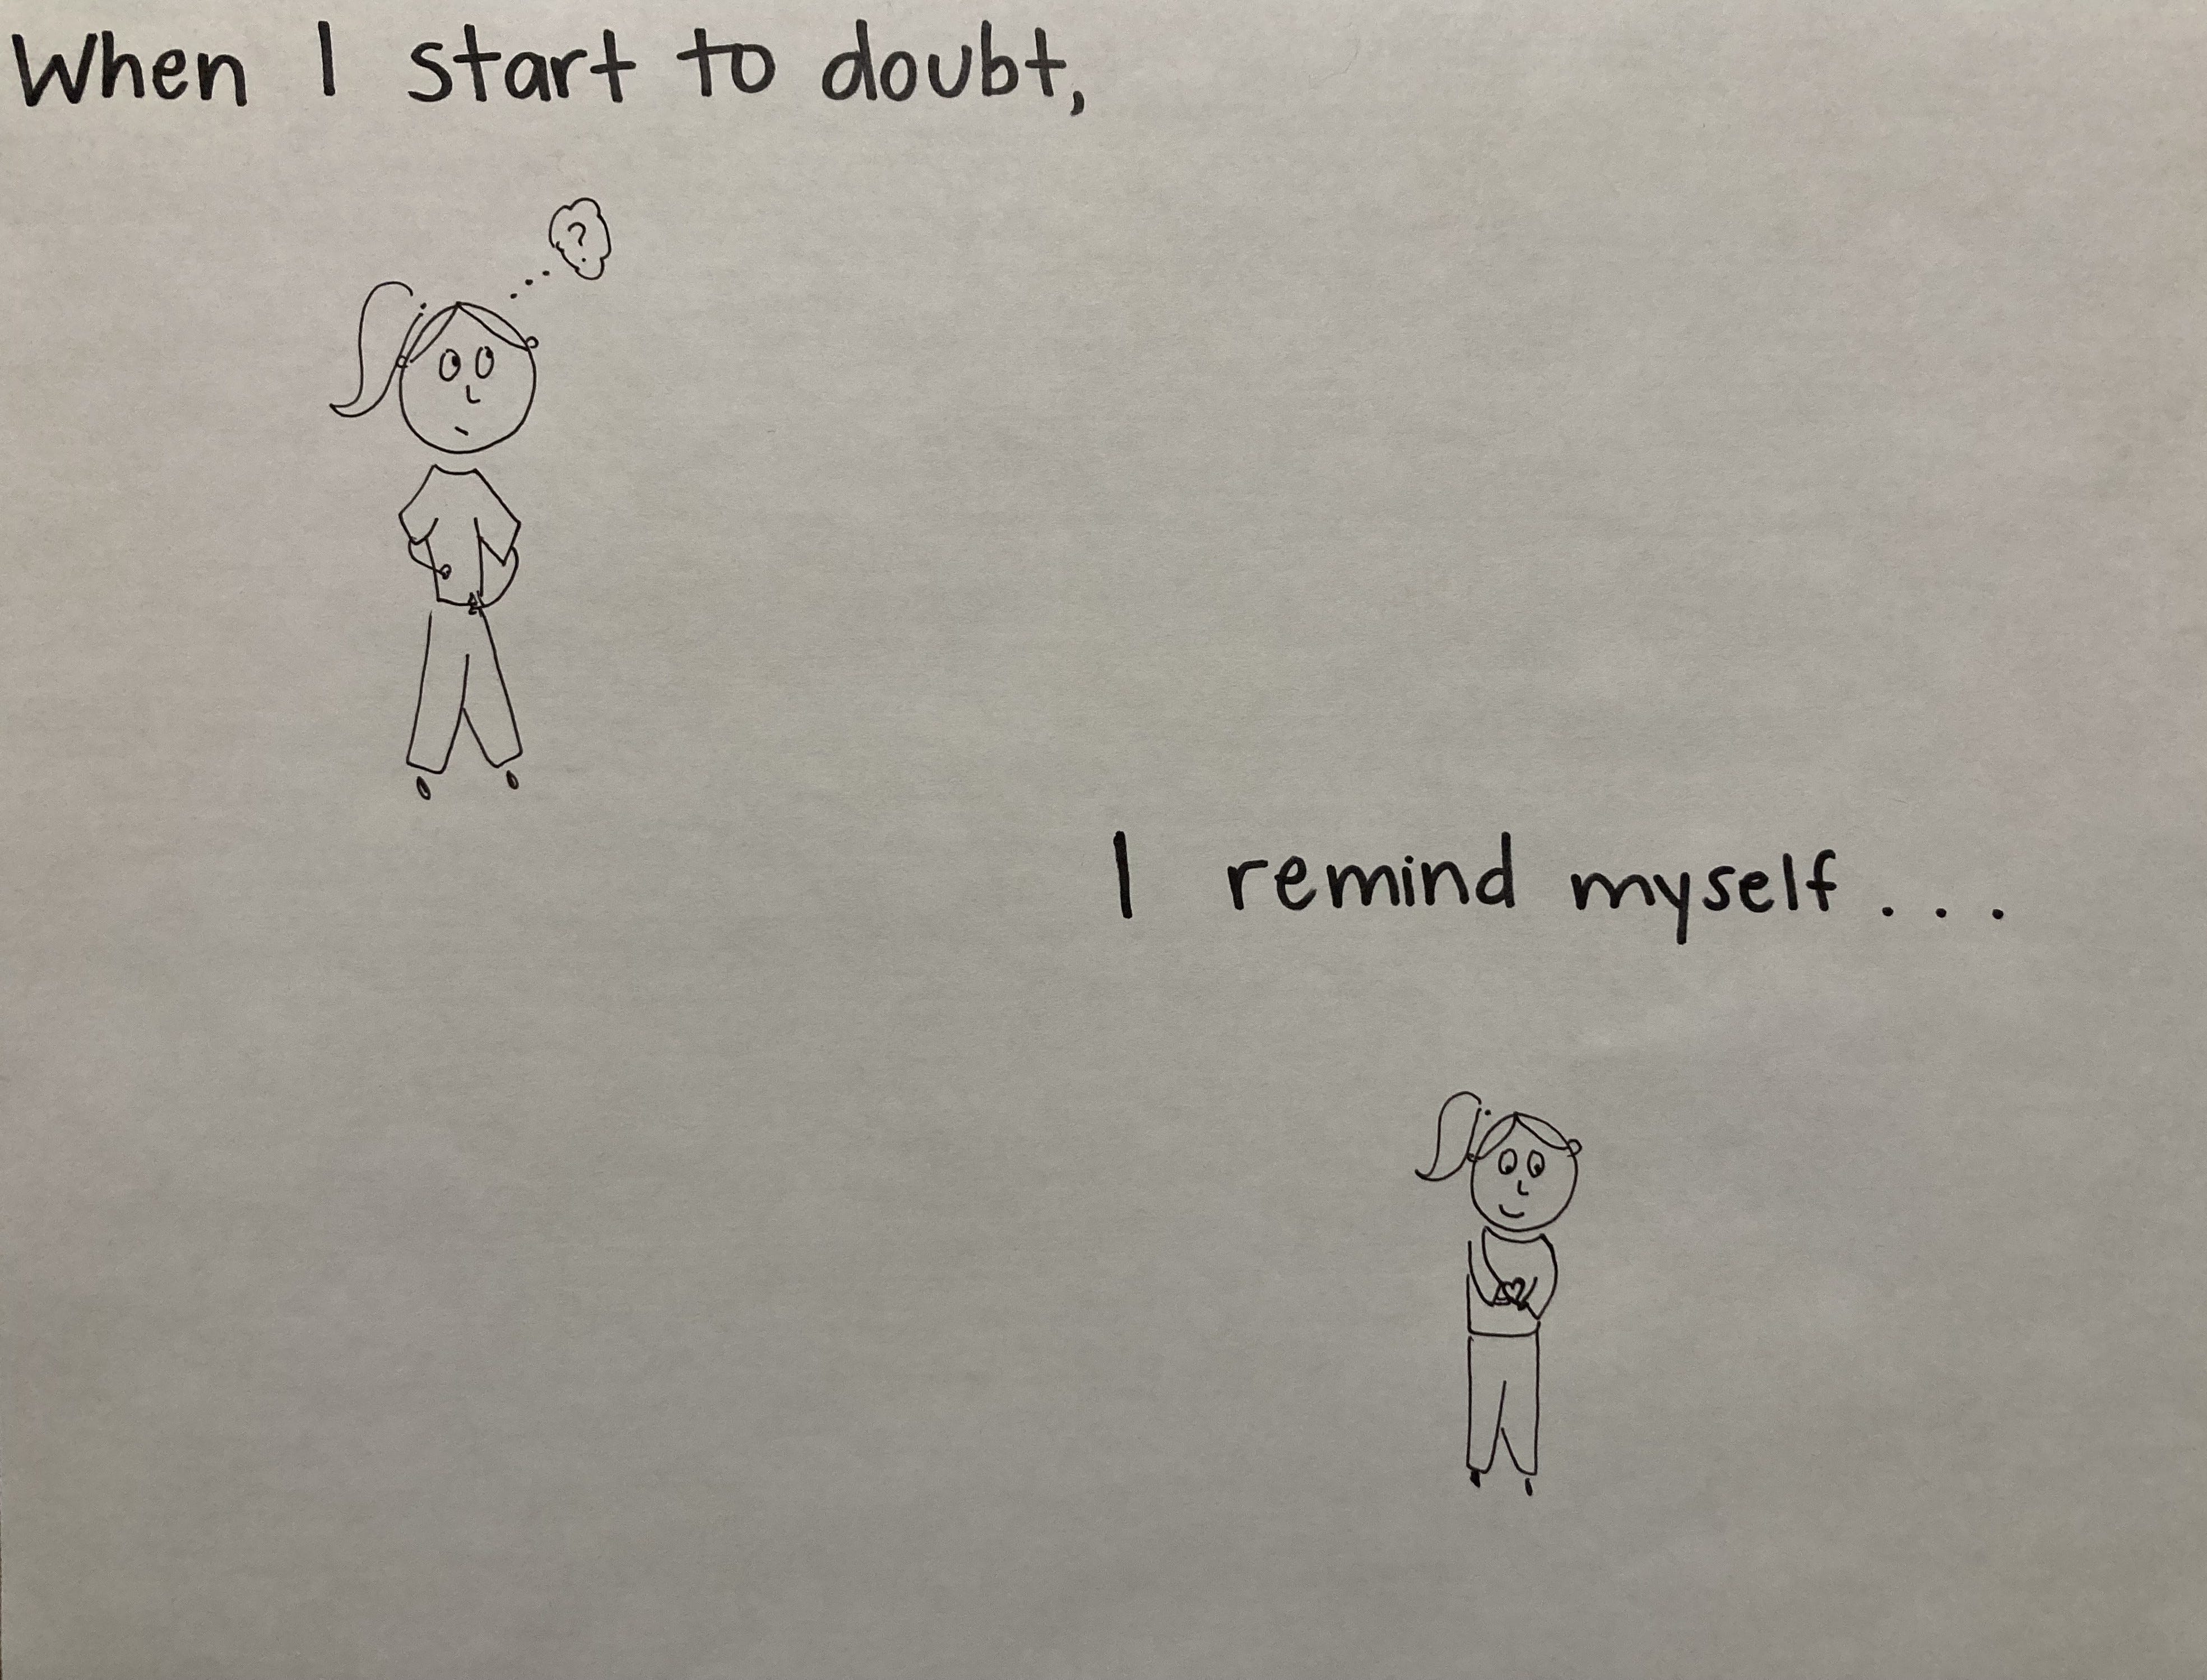 When I start to doubt,
?
I remind myself...